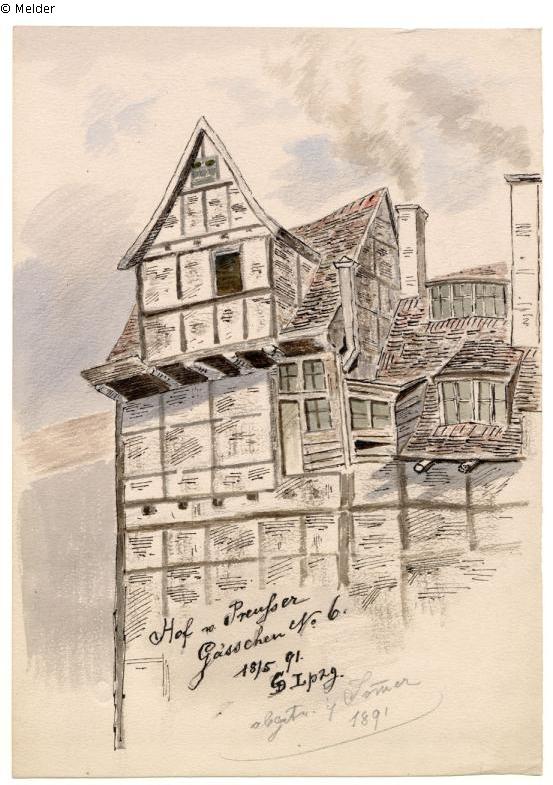 © Melder
Hof v. Preußer
Gässchen No 6.
18/5 91.
GB Lpzg.
abgetr. i/ Sommer
1891